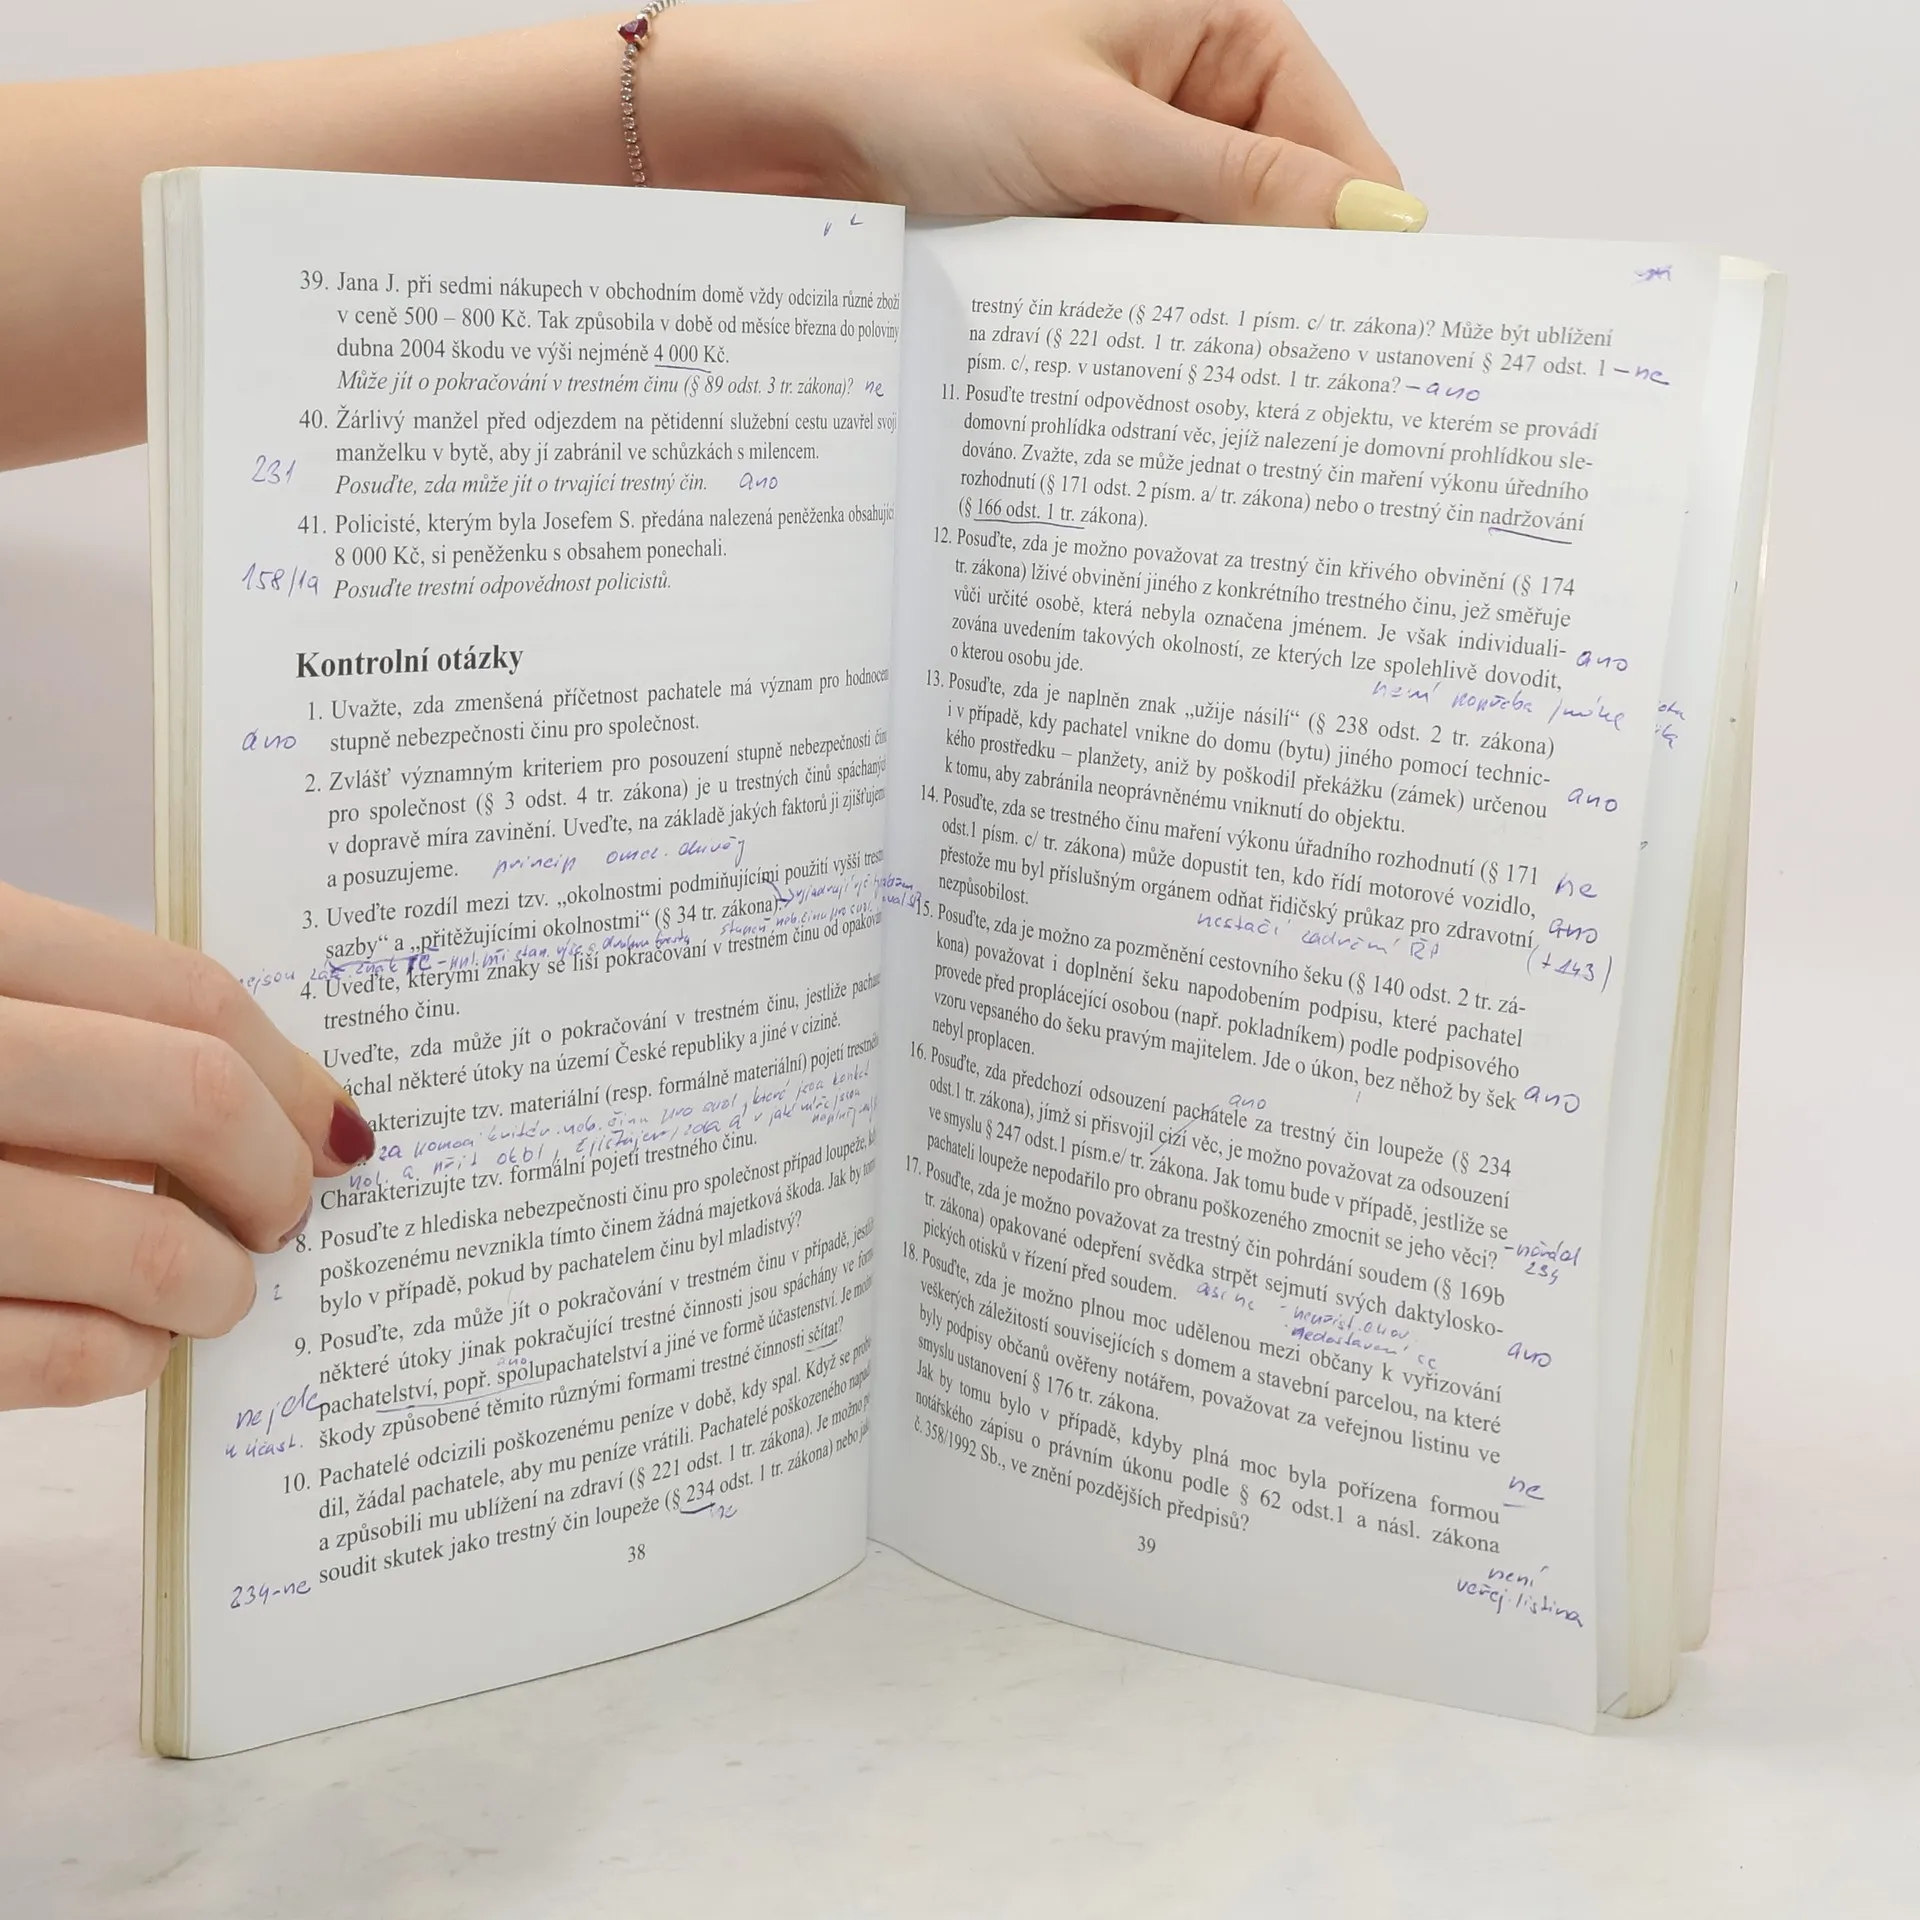 39. Jana J. při sedmi nákupech v obchodním domě vždy odcizila různé zboží
v ceně 500 – 800 Kč. Tak způsobila v době od měsíce března do poloviny
dubna 2004 škodu ve výši nejméně 4 000 Kč.
Může jít o pokračování v trestném činu (§ 89 odst. 3 tr. zákona)? ne
40. Žárlivý manžel před odjezdem na pětidenní služební cestu uzavřel svoji
manželku v bytě, aby jí zabránil ve schůzkách s milencem.
231 Posuďte, zda může jít o trvající trestný čin. ano
41. Policisté, kterým byla Josefem S. předána nalezená peněženka obsahující
8 000 Kč, si peněženku s obsahem ponechali.
158/1a Posuďte trestní odpovědnost policistů.
Kontrolní otázky
1. Uvažte, zda zmenšená příčetnost pachatele má význam pro hodnocen
ano stupně nebezpečnosti činu pro společnost.
2. Zvlášť významným kriteriem pro posouzení stupně nebezpečnosti čin
pro společnost (§ 3 odst. 4 tr. zákona) je u trestných činů spáchaných
v dopravě míra zavinění. Uveďte, na základě jakých faktorů ji zjišťujem
a posuzujeme. princip omez. důvěry
3. Uveďte rozdíl mezi tzv. „okolnostmi podmiňujícími použití vyšší trestn
sazby“ a „přitěžujícími okolnostmi“ (§ 34 tr. zákona).
nejsou
4. Uveďte, kterými znaky se liší pokračování v trestném činu od opakován
trestného činu.
Uveďte, zda může jít o pokračování v trestném činu, jestliže pachat
áchal některé útoky na území České republiky a jiné v cizině.
akterizujte tzv. materiální (resp. formálně materiální) pojetí trestnéh
za pomoci
Charakterizujte tzv. formální pojetí trestného činu.
8. Posuďte z hlediska nebezpečnosti činu pro společnost případ loupeže, kd
poškozenému nevznikla tímto činem žádná majetková škoda. Jak by tom
bylo v případě, pokud by pachatelem činu byl mladistvý?
9. Posuďte, zda může jít o pokračování v trestném činu v případě, jestli
některé útoky jinak pokračující trestné činnosti jsou spáchány ve form
ano
nejde pachatelství, popř. spolupachatelství a jiné ve formě účastenství. Je možn
u účast. škody způsobené těmito různými formami trestné činnosti sčítat?
10. Pachatelé odcizili poškozenému peníze v době, kdy spal. Když se probu
dil, žádal pachatele, aby mu peníze vrátili. Pachatelé poškozeného napadl
a způsobili mu ublížení na zdraví (§ 221 odst. 1 tr. zákona). Je možno p
soudit skutek jako trestný čin loupeže (§ 234 odst. 1 tr. zákona) nebo jak
234-ne ne
38
trestný čin krádeže (§ 247 odst. 1 písm. c/ tr. zákona)? Může být ublížení
na zdraví (§ 221 odst. 1 tr. zákona) obsaženo v ustanovení § 247 odst. 1 – ne
písm. c/, resp. v ustanovení § 234 odst. 1 tr. zákona? – ano
11. Posuďte trestní odpovědnost osoby, která z objektu, ve kterém se provádí
domovní prohlídka odstraní věc, jejíž nalezení je domovní prohlídkou sle-
dováno. Zvažte, zda se může jednat o trestný čin maření výkonu úředního
rozhodnutí (§ 171 odst. 2 písm. a/ tr. zákona) nebo o trestný čin nadržování
(§ 166 odst. 1 tr. zákona).
12. Posuďte, zda je možno považovat za trestný čin křivého obvinění (§ 174
tr. zákona) lživé obvinění jiného z konkrétního trestného činu, jež směřuje
vůči určité osobě, která nebyla označena jménem. Je však individuali-
zována uvedením takových okolností, ze kterých lze spolehlivě dovodit, ano
o kterou osobu jde.
není potřeba jméne
13. Posuďte, zda je naplněn znak „užije násilí“ (§ 238 odst. 2 tr. zákona)
i v případě, kdy pachatel vnikne do domu (bytu) jiného pomocí technic-
kého prostředku – planžety, aniž by poškodil překážku (zámek) určenou ano
k tomu, aby zabránila neoprávněnému vniknutí do objektu.
14. Posuďte, zda se trestného činu maření výkonu úřadního rozhodnutí (§ 171
odst.1 písm. c/ tr. zákona) může dopustit ten, kdo řídí motorové vozidlo, ne
přestože mu byl příslušným orgánem odňat řidičský průkaz pro zdravotní ano
nezpůsobilost. nestačí zadržení ŘP (+ 143)
15. Posuďte, zda je možno za pozměnění cestovního šeku (§ 140 odst. 2 tr. zá-
kona) považovat i doplnění šeku napodobením podpisu, které pachatel
provede před proplácející osobou (např. pokladníkem) podle podpisového
vzoru vepsaného do šeku pravým majitelem. Jde o úkon, bez něhož by šek ano
nebyl proplacen.
ano
16. Posuďte, zda předchozí odsouzení pachatele za trestný čin loupeže (§ 234
odst.1 tr. zákona), jímž si přisvojil cizí věc, je možno považovat za odsouzení
ve smyslu § 247 odst.1 písm.e/ tr. zákona. Jak tomu bude v případě, jestliže se
pachateli loupeže nepodařilo pro obranu poškozeného zmocnit se jeho věci? -návod
234
17. Posuďte, zda je možno považovat za trestný čin pohrdání soudem (§ 169b
tr. zákona) opakované odepření svědka strpět sejmutí svých daktylosko-
pických otisků v řízení před soudem. asi ne
18. Posuďte, zda je možno plnou moc udělenou mezi občany k vyřizování ano
veškerých záležitostí souvisejících s domem a stavební parcelou, na které
byly podpisy občanů ověřeny notářem, považovat za veřejnou listinu ve
smyslu ustanovení § 176 tr. zákona. ne
Jak by tomu bylo v případě, kdyby plná moc byla pořízena formou
notářského zápisu o právním úkonu podle § 62 odst.1 a násl. zákona
č. 358/1992 Sb., ve znění pozdějších předpisů?
není
veřej. listina
39